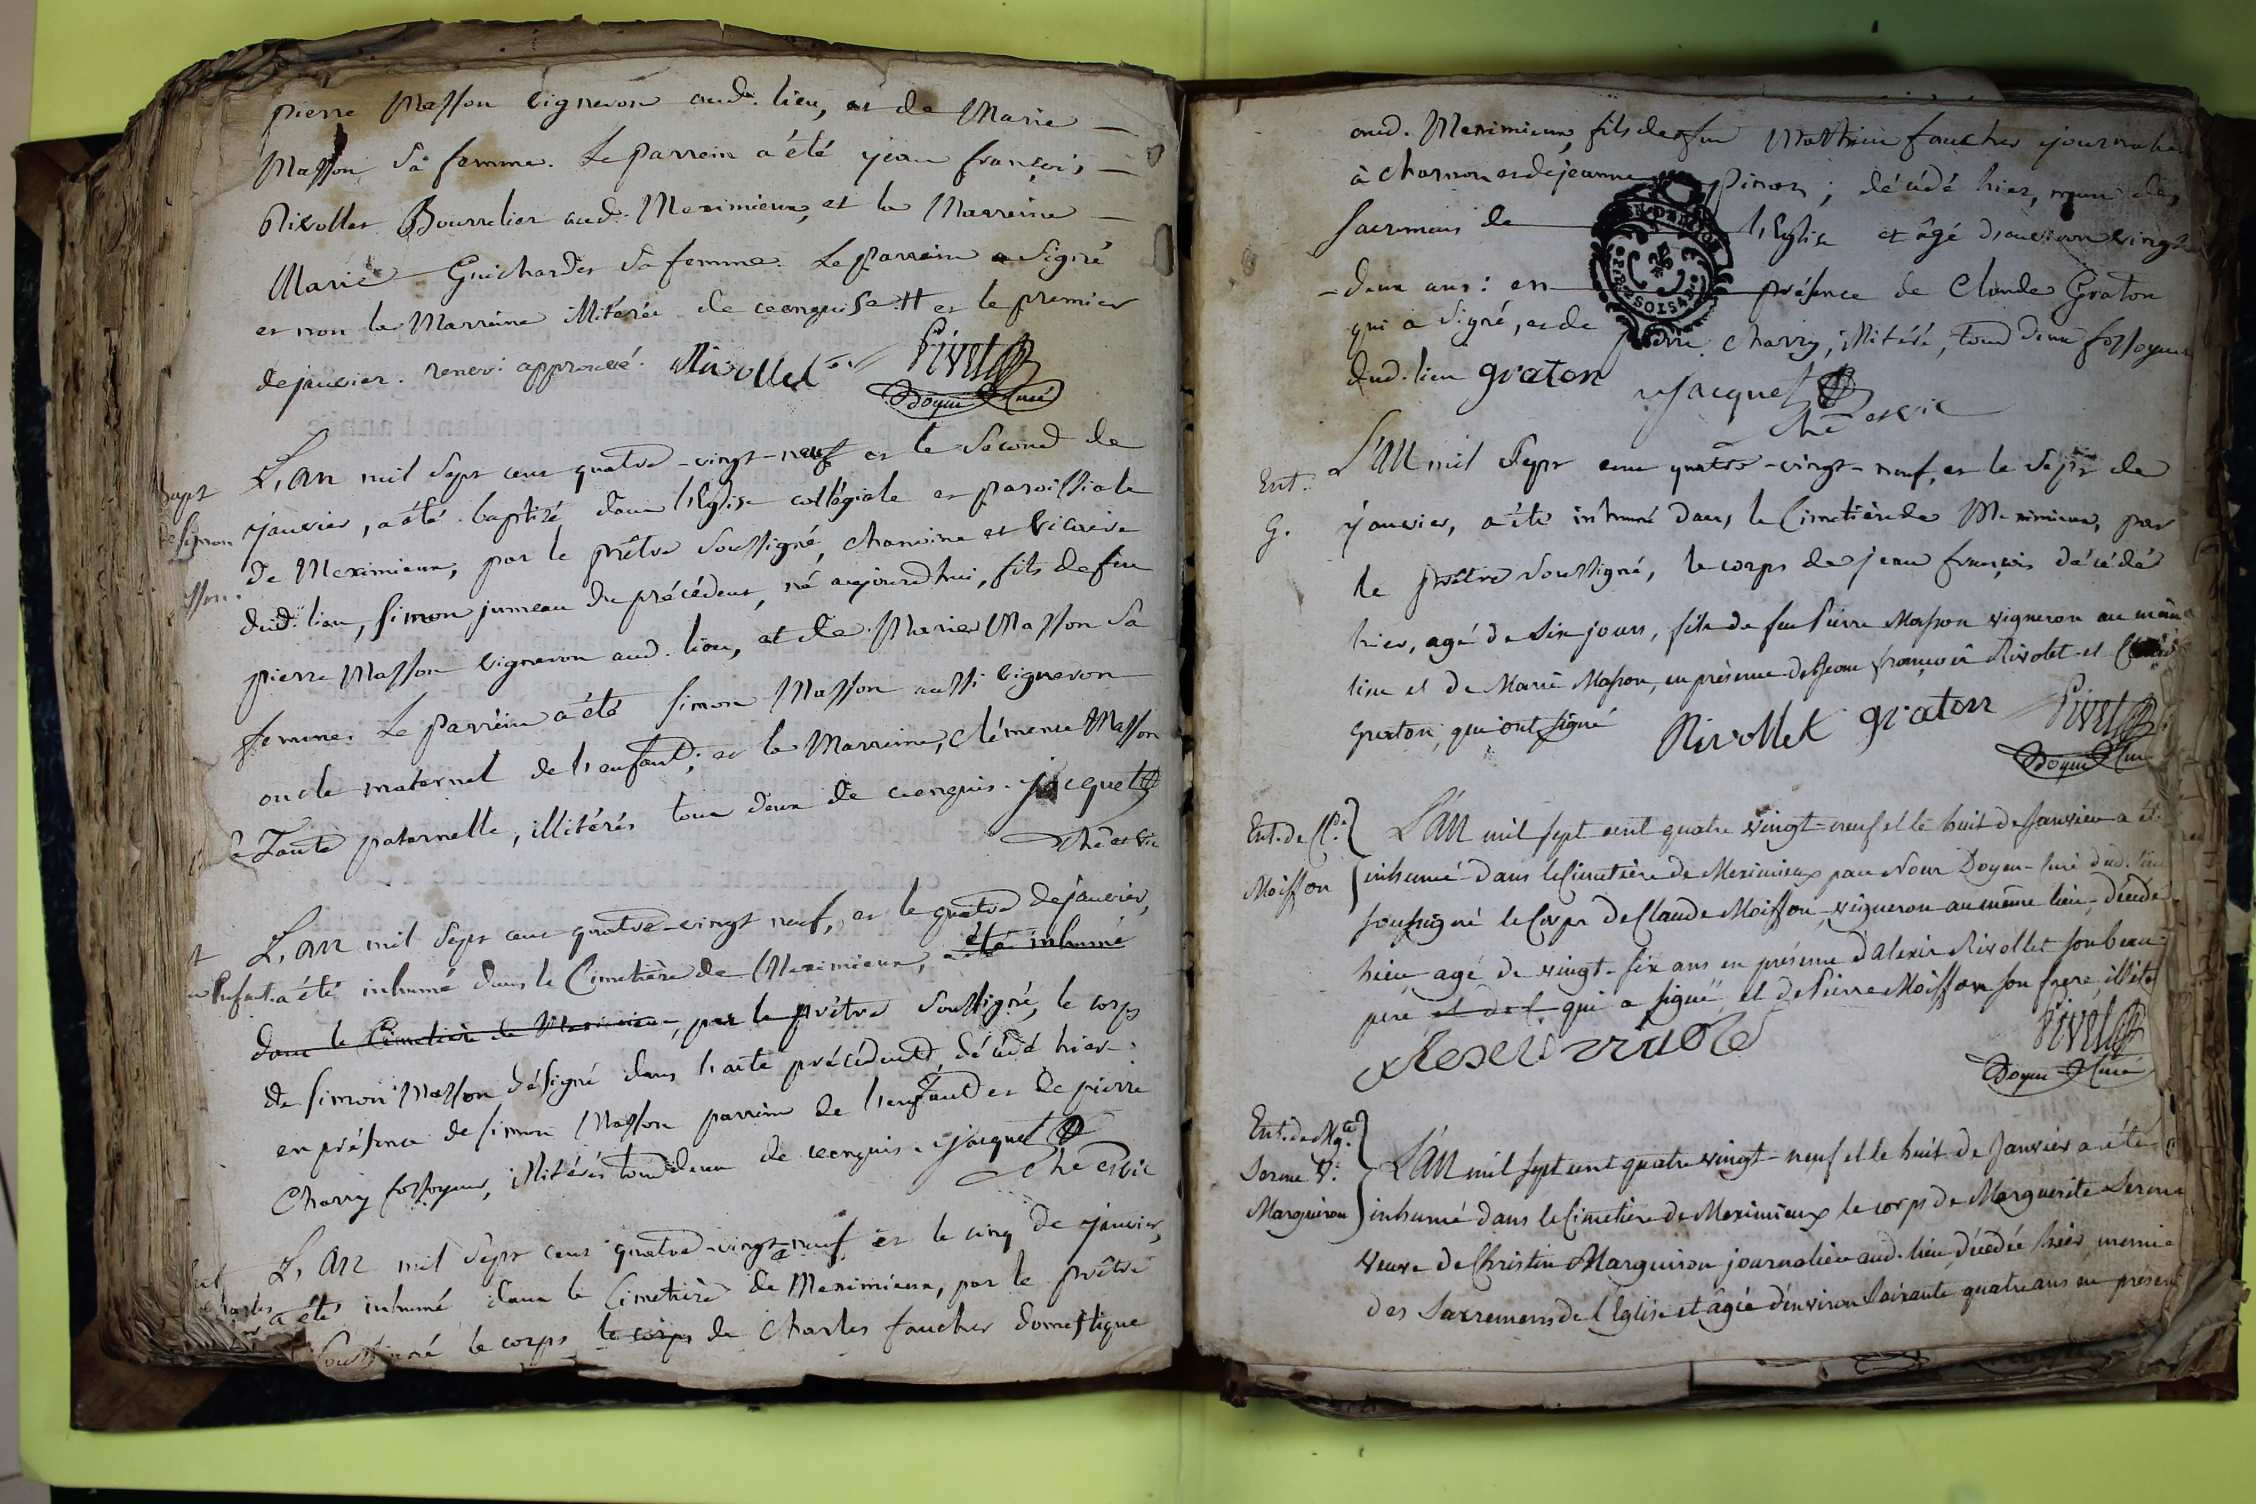 pierre Masson vigneron aud. lieu, et de Marie
Masson sa femme. Le parrein a été jean françois
Rivollet Bourrelier aud. Meximieux, et la Marreine
Marie Guichardet sa femme. Le parrein a signé
et non la Marreine illitérée de ce enquise. # et le premier
de janvier. renvoi approuvé. Rivollet Pivet
Doyen Curé
Bapt
de simon
L'an mil sept cent quatre-vingt-neuf et le second de
janvier, a été baptisé dans l'Eglise collégiale et paroissiale
de Meximieux, par le prêtre soussigné, chanoine et vicaire
dud. lieu, simon jumeau du précédent, né aujourd'hui, fils de feu
pierre Masson vigneron aud. lieu, et de Marie Masson sa
femme. Le parrein a été simon Masson aussi vigneron
oncle maternel de l'enfant; et la Marreine, clémence Masson
sa Tante paternelle, illitérés tous deux de ce enquis. jacquet
che et vic
L'an mil sept cent quatre-vingt neuf, et le quatre de janvier,
a été inhumé dans le Cimetière de Meximieux, a été inhumé
dans le Cimetière de Meximieux, par le prêtre soussigné, le corps
de simon Masson désigné dans l'acte précédent, décédé hier:
en présence de simon Masson parrein de l'enfant et de pierre
Charry fossoyeur, illitérés tous deux de ce enquis. jacquet
che et vic
L'an mil sept cent quatre-vingt-neuf et le cinq de janvier,
a été inhumé dans le Cimetière de Meximieux, par le prêtre
soussigné le corps le corps de Charles faucher domestique
aud. Meximieux, fils de feu Mathieu faucher journalier
à charnon et de jeanne pinon; décédé hier, muni des
sacremens de l'Eglise et âgé d'environ vingt
deux ans: en présence de Claude Graton
qui a signé, et de pierre charry, illitéré, tous deux fossoyeurs
dud. lieu graton jacquet
che et vic
Ent.
G.
L'an mil sept cent quatre-vingt-neuf, et le sept de
janvier, a été inhumé dans le Cimetière de Meximieux, par
le prêtre soussigné, le corps de jean françois décédé
hier, agé de six jours, fils de feu Pierre Masson vigneron au même
lieu et de Marie Masson, en présence de Jean françois Rivolet et
Graton, qui ont signé Rivollet graton Pivet
Doyen Curé
Ent. de Cl.
Moisson
L'an mil sept cent quatre vingt-neuf et le huit de Janvier a été
inhumé dans le Cimetière de Meximieux par Nous Doyen-Curé dud. lieu
soussigné le Corps de Claude Moisson, vigneron au même lieu, décédé
hier, agé de vingt-six ans en présence d'alexis Rivollet son beau-
pere et de C qui a signé, et de Pierre Moisson son frere, illité
Pivet
Doyen Curé
Ent. de Mgte
Serme V.
Marguiron
L'an mil sept cent quatre vingt-neuf et le huit de Janvier a été
inhumé dans le Cimetiere de Meximieux le corps de Marguerite Serme
veuve de Christin Marguiron journalier aud. lieu, décédée hier, munie
des Sacremens de l'Eglise et âgée d'environ soixante quatre ans en présence